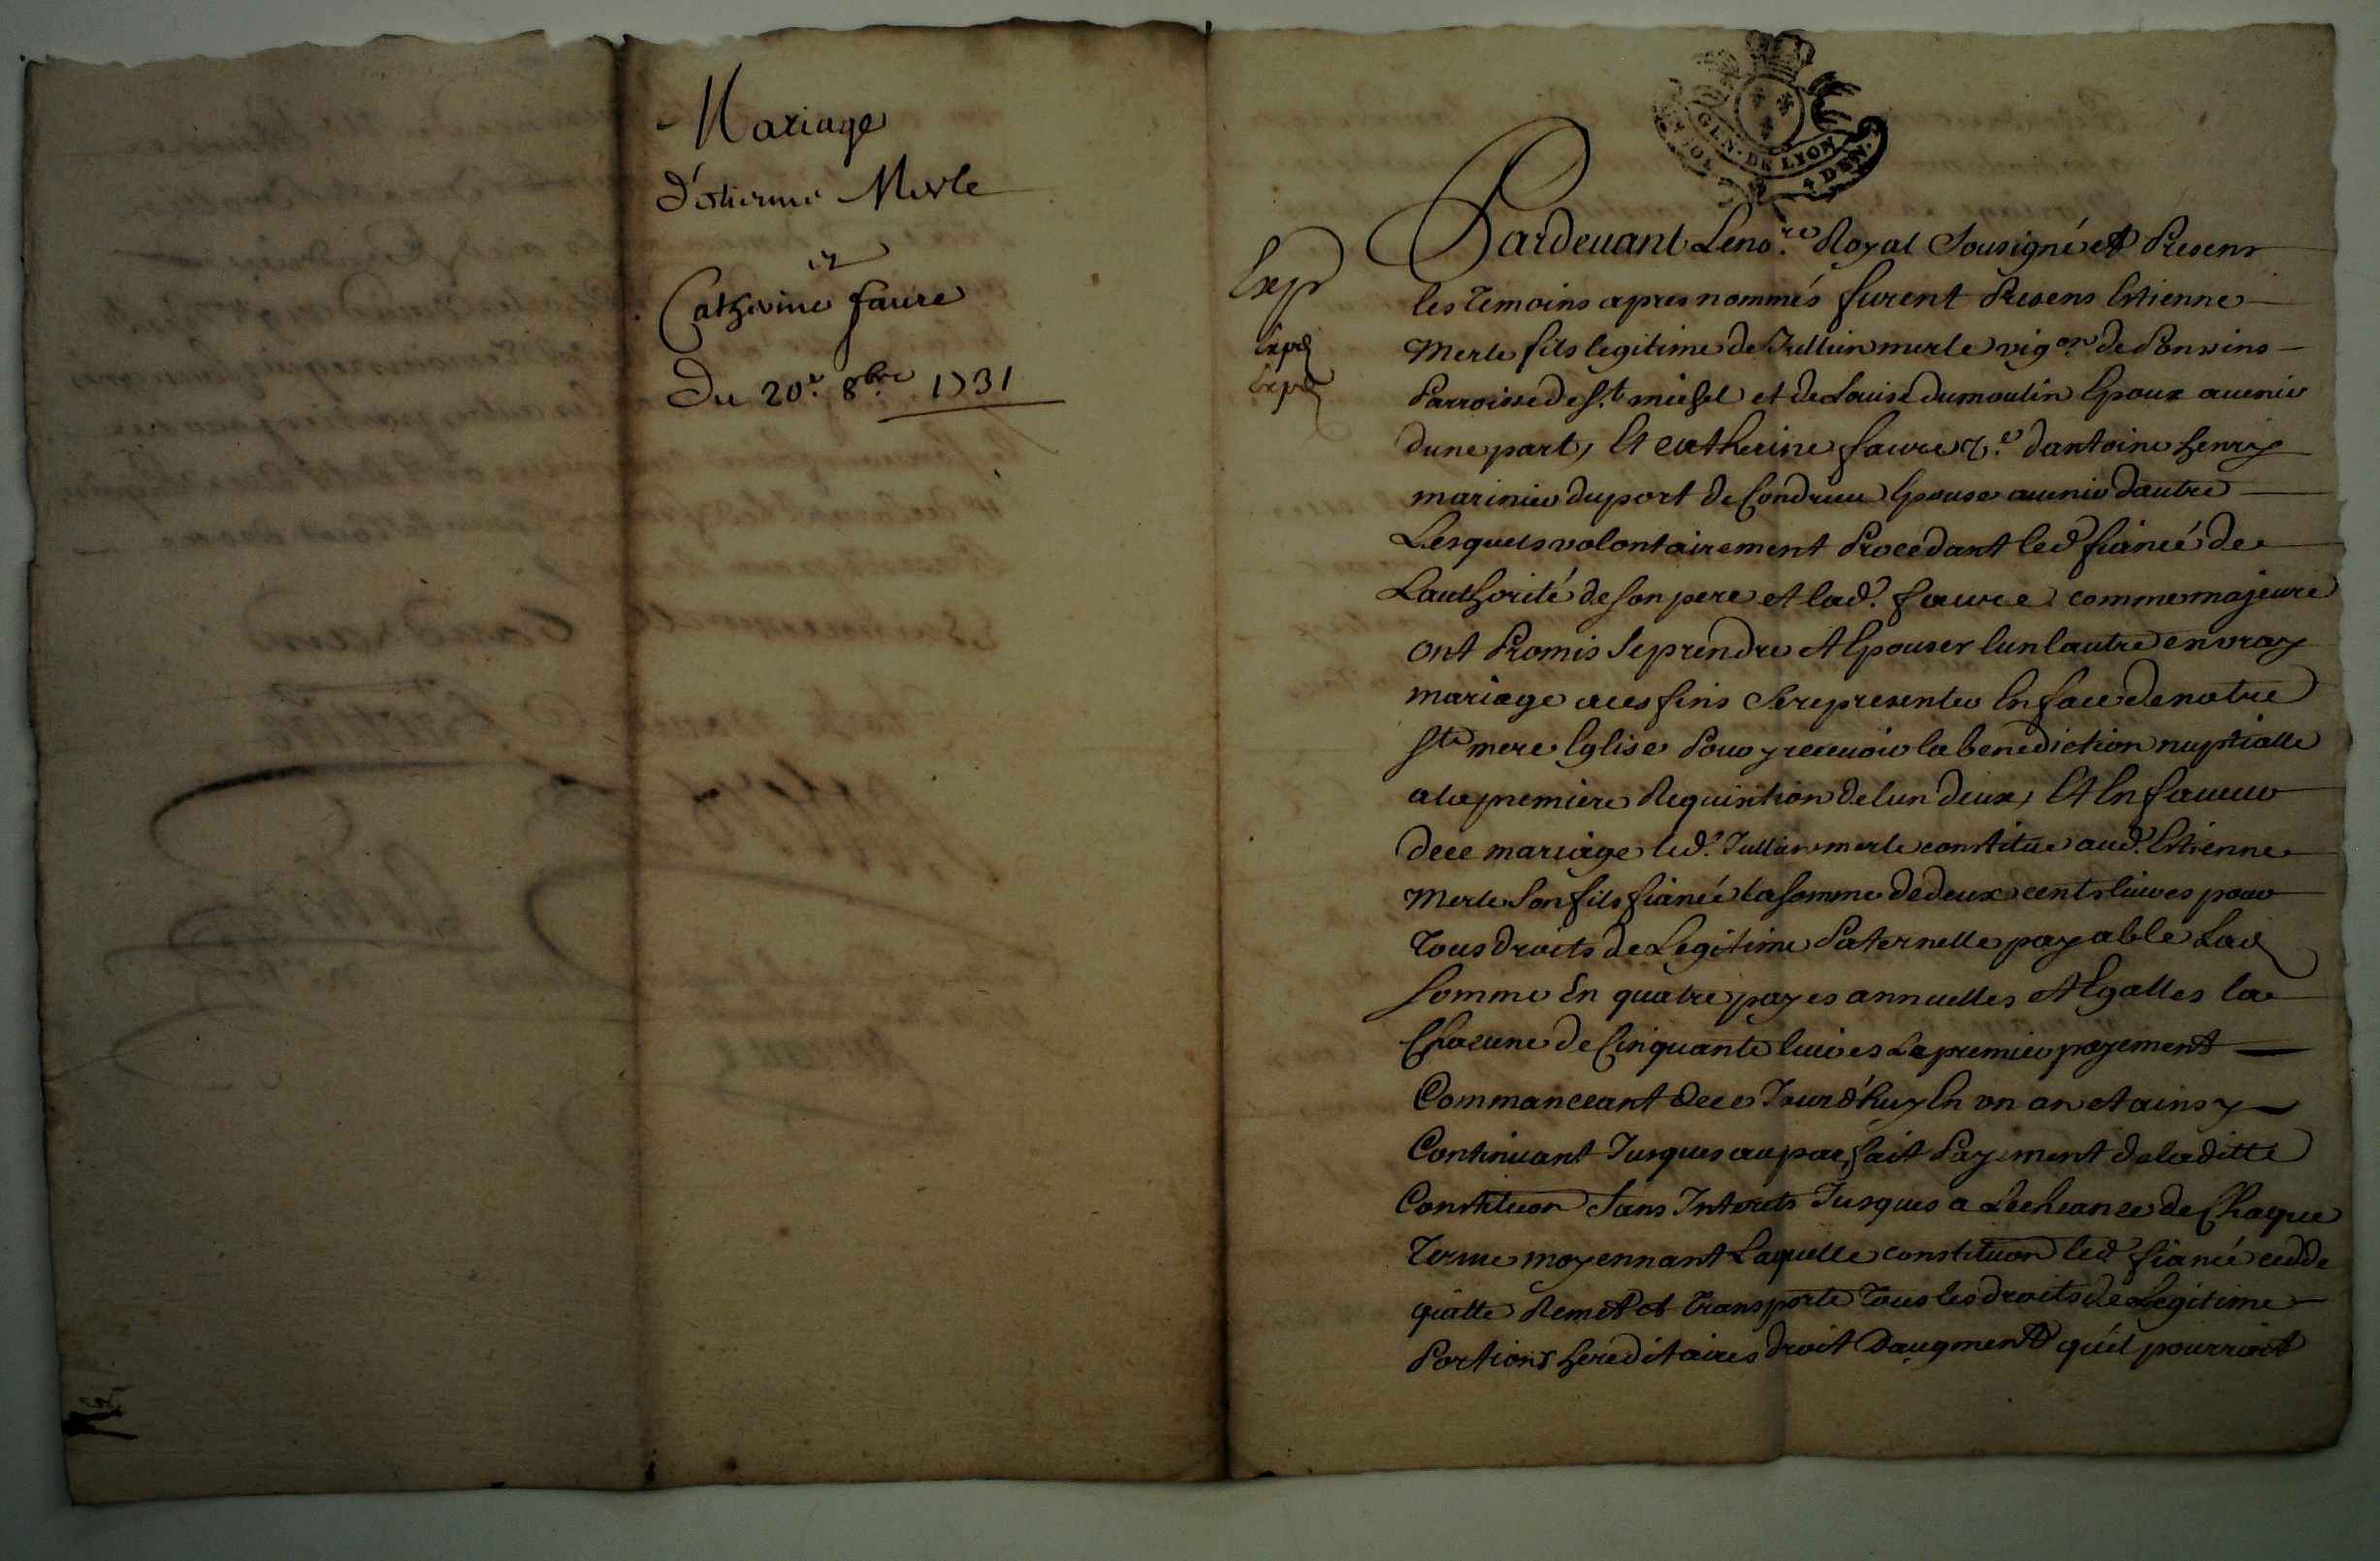 Mariage
d'Estienne Merle
et
Catherine faure
Du 20e. 8bre 1731
GEN. DE LYON
4 DEN.
Exp
Expé
Expé
Pardeuant Leno.re Royal Sousigné et Presens
les temoins apres nommés furent Presens Estienne
Merle fils legitime de Jullien merle vig.on de Ponsins
Parroisse de St. michel et de Louise dumoulin Epoux auenir
dune part, Et catherine faure v.e dantoine henry
marinier du port de Condrieu Epouse auenir dautre
Lesquels volontairement Procedant led fiancé de
Lauthorité de son pere et lad. faure comme majeure
ont Promis se prendre et Epouser lun lautre en vray
mariage a ces fins se representer En face de notre
Ste mere Eglise Pour y receuoir la benediction nuptialle
a la premiere Requisition de lun deux, Et En faueur
de ce mariage led. Jullien merle constitue aud. Estienne
Merle Son fils fiancé la somme de deux cents liures pour
tous droits de Legitime Paternelle payable Lad
somme En quatre payes annuelles et Egalles la
Chacune de Cinquante liures Le premier payement
Commanceant de ce Jourd'huy En un an et ainsy
Continuant Jusques au parfait Payement de laditte
Constituon sans Interets Jusques a Lecheance de Chaque
terme moyennant Laquelle constituon led fiancé cedde
quitte Remet et transporte tous les droits de Legitime
Portions hereditaires droit Daugment qu'il pourroit